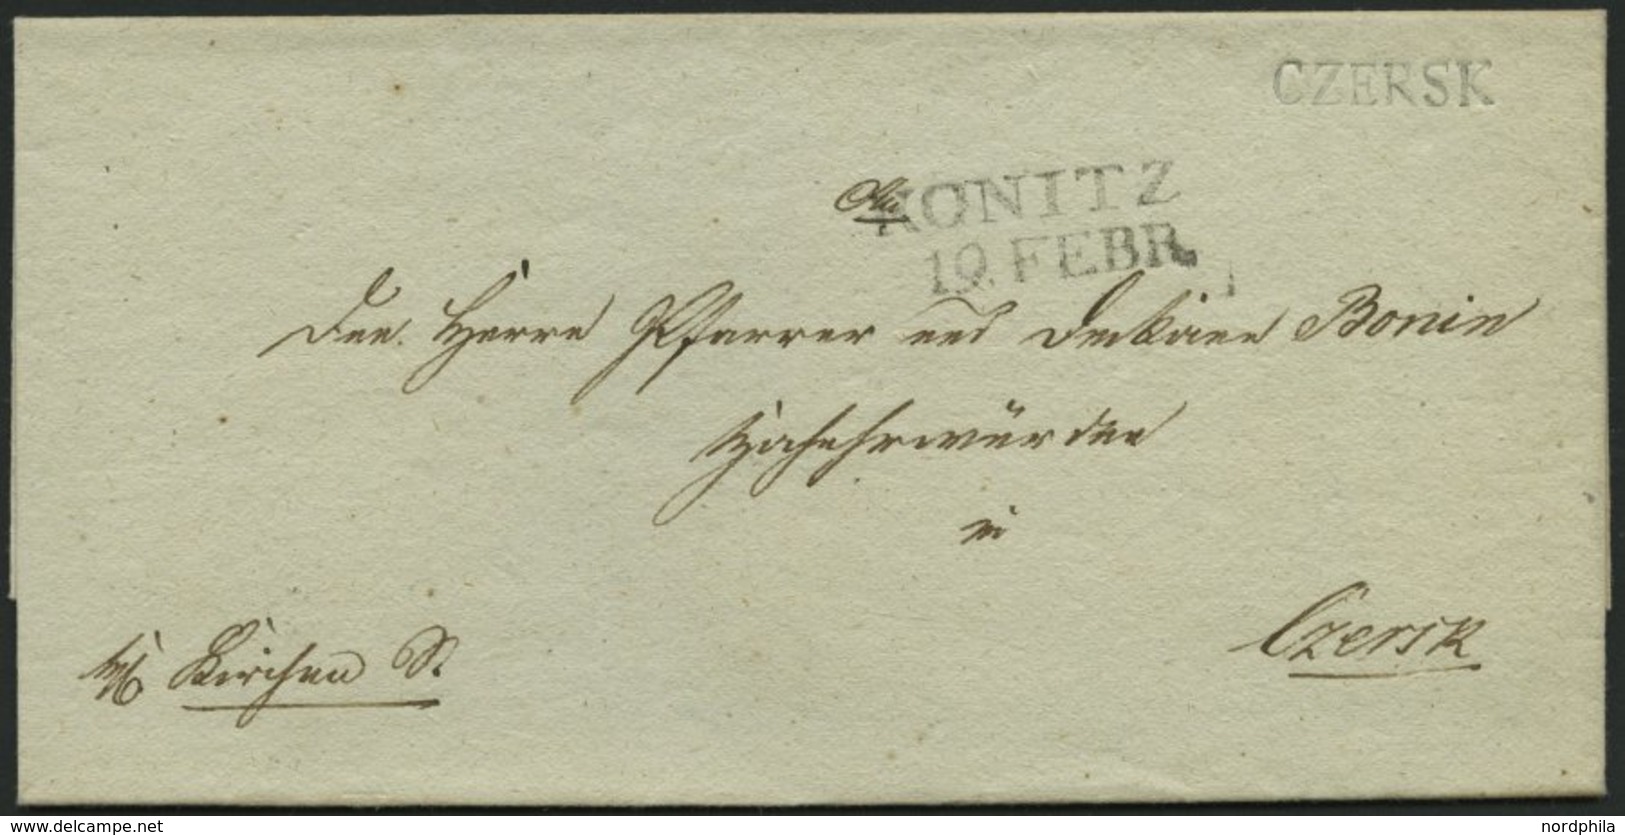 CZERSK
KONITZ
An
19. FEBR.
den Herrn Pfarrer und Dechant Bonin
Hochehrwürden
in
Czersk
Kirchen S.
www.delcampe.net
nordphila